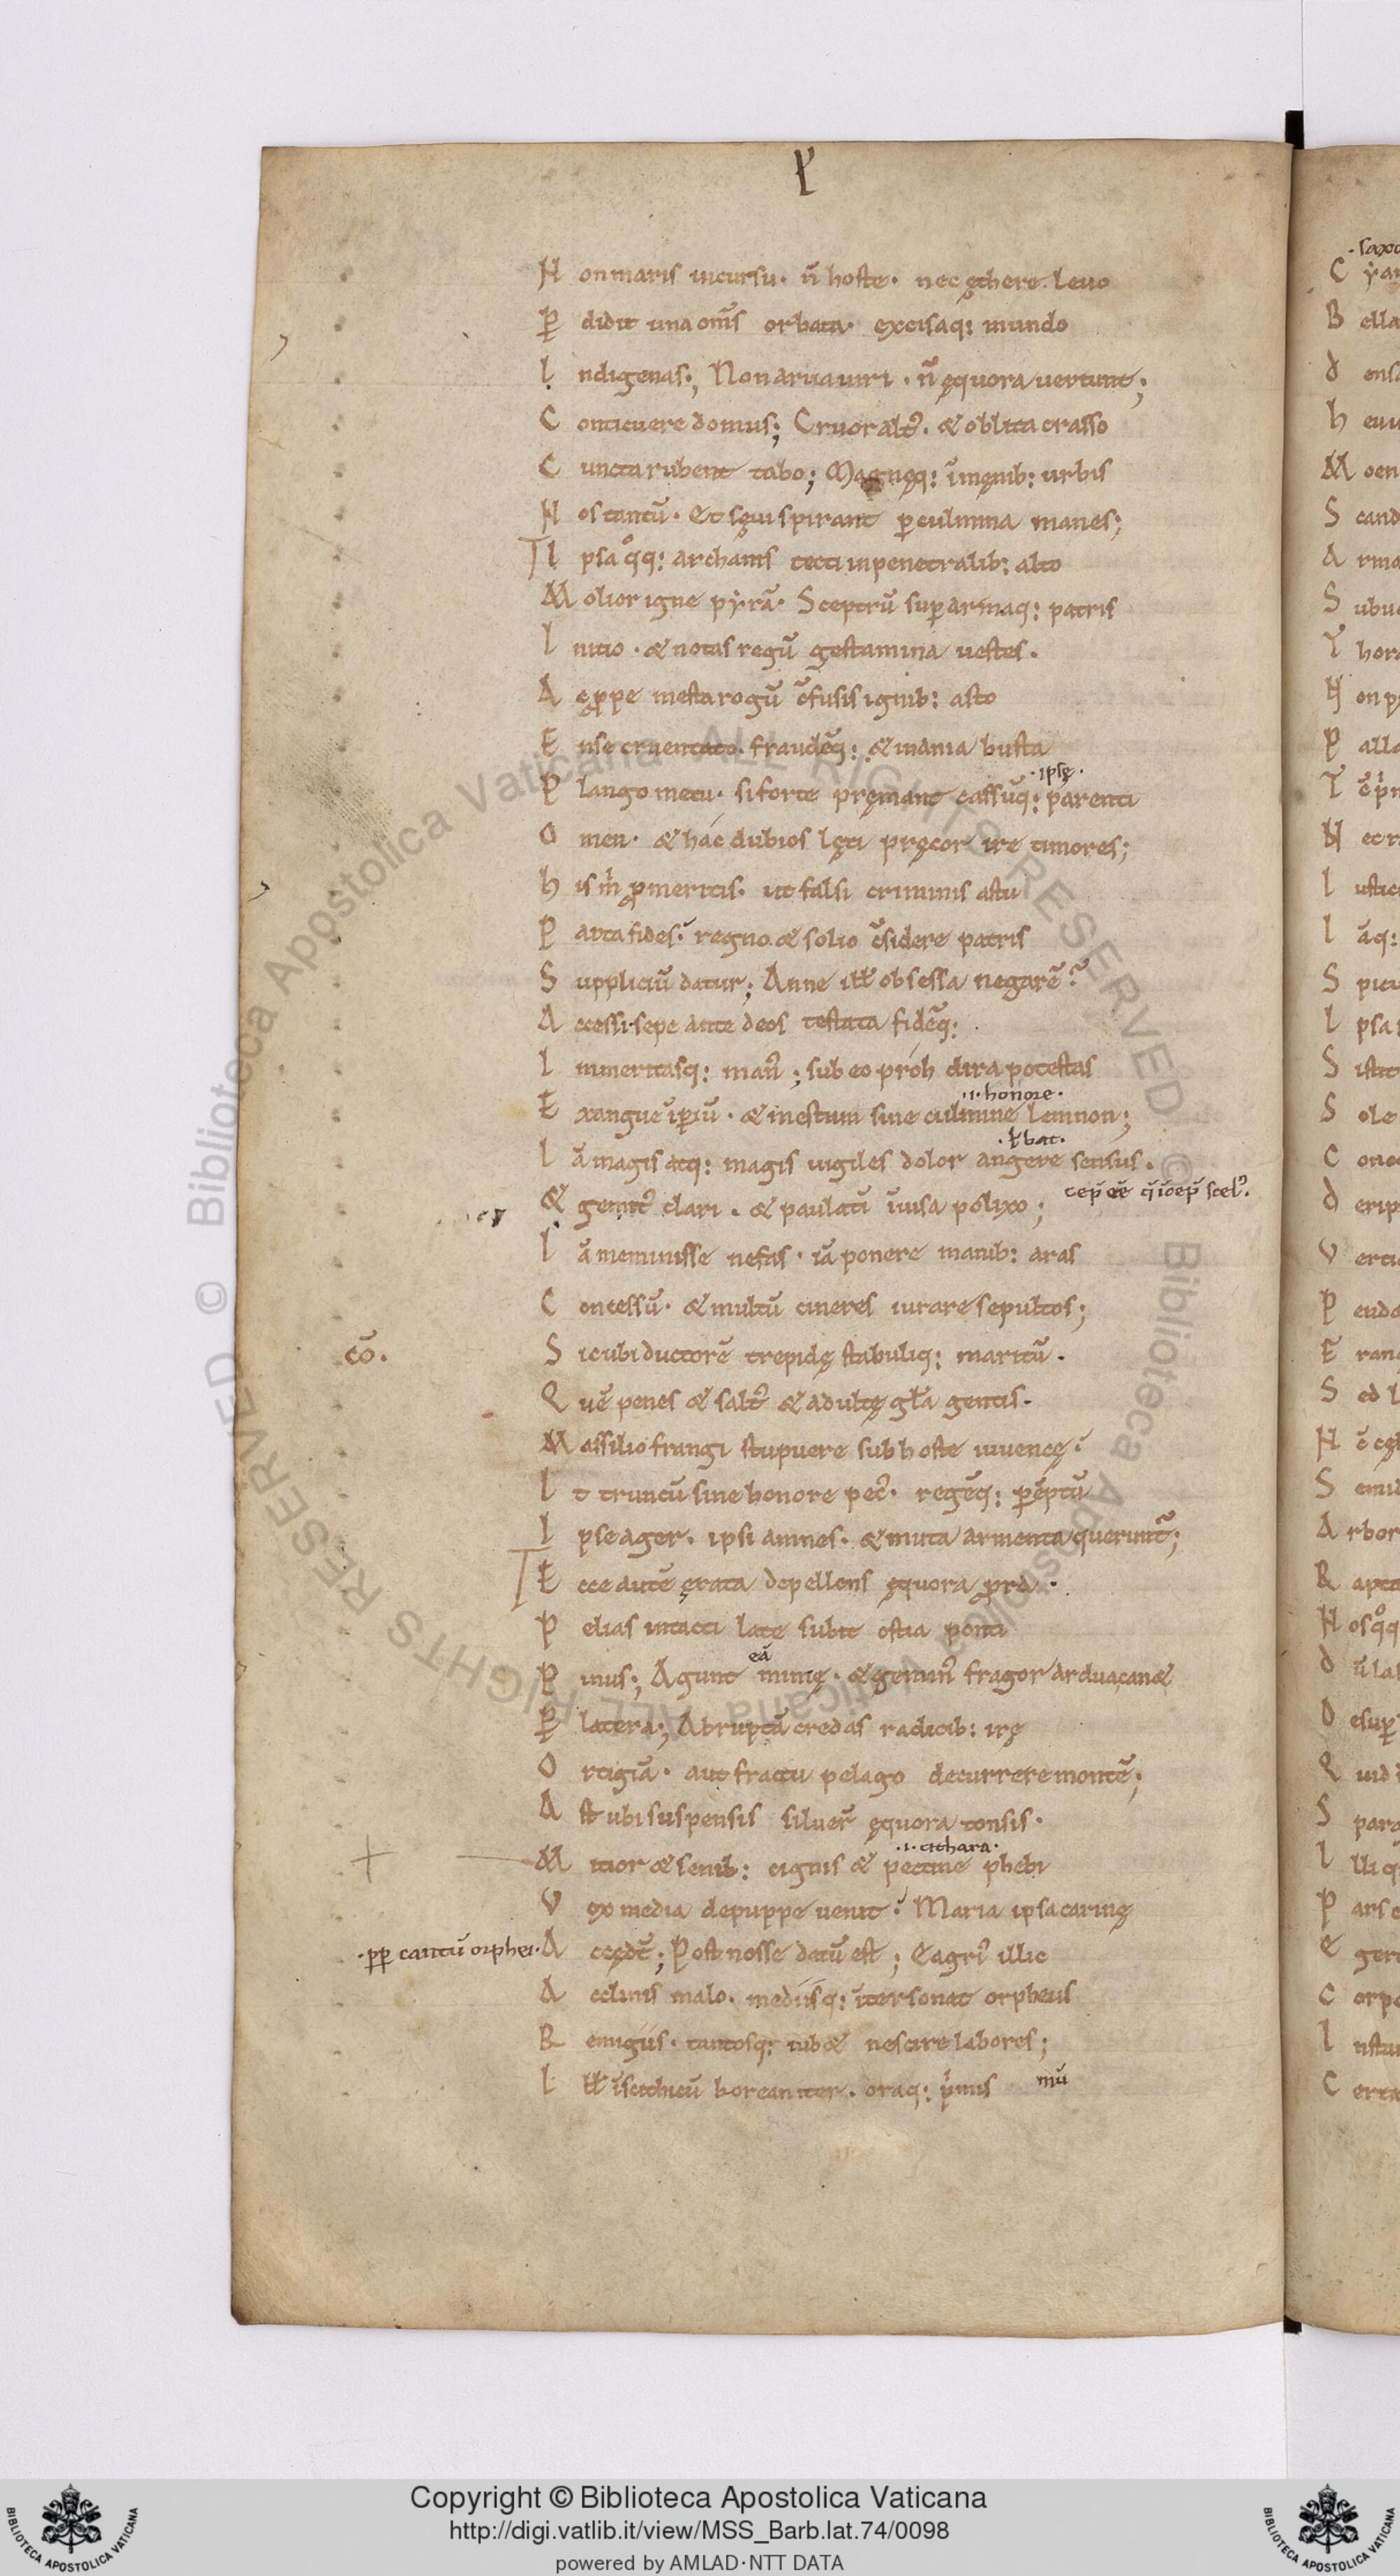 ꝉ
N on maris incursu· n̄ hoste· nec ęthere leuo
ꝑ didit una om̄s orbata· excisaq: mundo
I ndigenas; Non arua uiri· n̄ ęquora uertunt;
C onticuere domus; Cruor alt᷒· & oblita crasso
C uncta rubent tabo; Magnęq: ī męnib: urbis
N os tantū· Et sęui spirant ꝑ culmina manes;
I psa qͦq: archanis tecti in penetralib: alto
M olior igne pẏrā· Sceptrū suꝑ armaq: patris
I nicio· & notas regū gestamina uestes·
A c ꝓpe mesta rogū c̄fusis ignib: asto
E nse cruentato· fraudēq: & inania busta
·ipsę·
P lango metu· si forte pręmant cassūq: parenti
O men· & hác dubios lęti pręcor ire timores;
h is m̍ ꝓ meritis· ut falsi criminis astu
P arta fides· regno & solio c̄sidere patris
S uppliciū datur; Anne illˀ obsessa negarē?
A ccessi· sepe ante deos testata fidēq:·
I nmeritasq: man᷒; sub eo próh dira potestas
·i· honore·
E xangue īꝑiū· & inestum sine culmine lemnon;
·ł bat·
I ā magis atq: magis uigiles dolor angere sensus·
& gemit᷒ clari· & paulatī īuisa polixo; cep̄ eē q̄ īcep̄ scel᷒·
I ā meminisse nefas· iā ponere manib: aras
C oncessū· & multū cineres iurare sepultos;
cō· S ic ubi ductorē trepidę stabuliq: maritū·
Q uē penes & salt᷒ & adultę gła gentis·
M assilio frangi stupuere sub hoste iuuencę·
I t truncū sine honore pec᷒· regēq: ꝑēptū
I pse ager· ipsi amnes· & muta armenta queruntᷣ;
E cce autē ęrata depellens ęquora ꝓra·
P elias intacti late subit ostia ponti
eā
P inus; Agunt minię· & gemin᷒ fragor ardua can&
ꝑ latera; Abruptā credas radicib: irę
O rtigiā· aut fractu pelago decurrere montē;
A st ubi suspensis siluer̄ ęquora tonsis·
·i· cithara·
M itior & senib: cignis & pectine phebi
V ox media de puppe uenit· Maria ipsa carinę
·ꝓp̄ cantū orphei· A ccędt̄; Post nosse datū est; Eagri᷒ illic
A cclinis malo· mediisq: īter sonat orpheus
R emigiis· tantosq: iub& nescire labores;
I llˀ ī scithicū borean iter· oraq: pͥmis mū
Copyright © Biblioteca Apostolica Vaticana
http://digi.vatlib.it/view/MSS_Barb.lat.74/0098
powered by AMLAD·NTT DATA